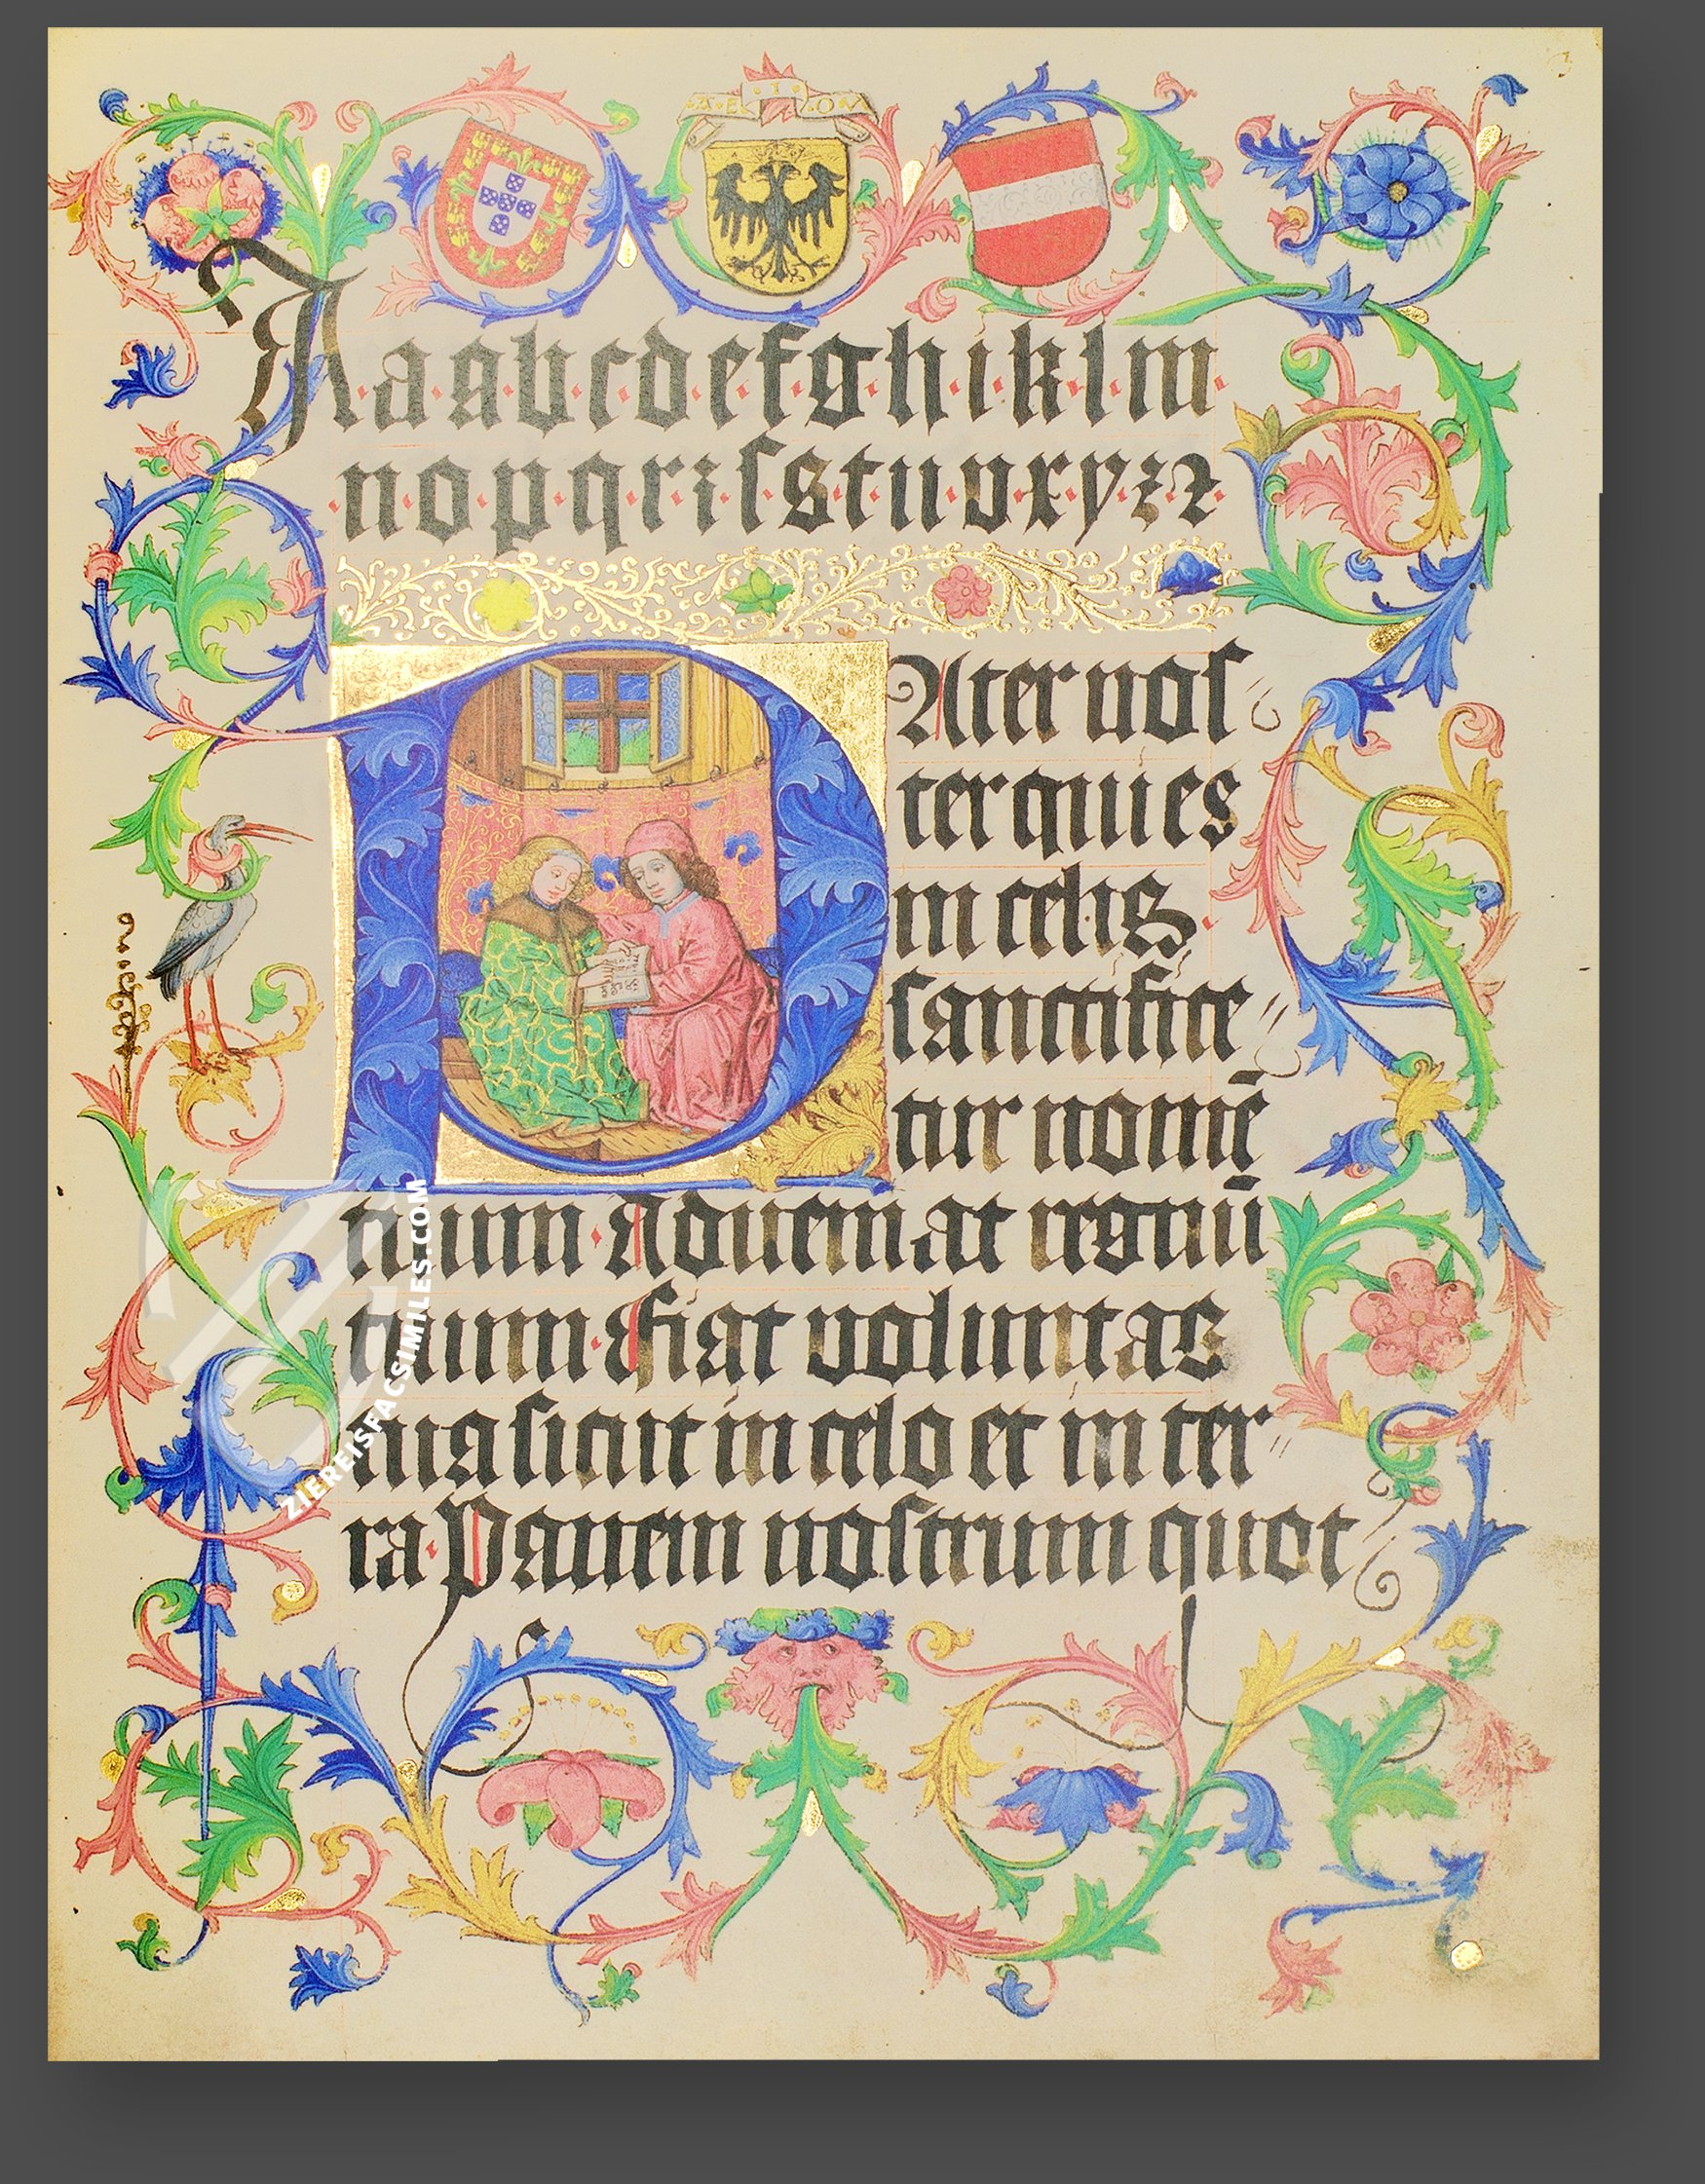 A·E·I·O·V
A·a·a·b·c·d·e·f·g·h·i·k·l·m·
·n·o·p·q·r·ꝛ·ſ·s·t·u·v·x·y·z·ꝛ·
PAter noſ〃
ter qui es
in celis·
ſanctifice〃
tur nomē
tuum·Adueniat regnū
tuum·Fiat voluntas
tua ſicut in celo et in ter〃
ra·Panem noſtrum quot
ZIEREISFACSIMILES.COM